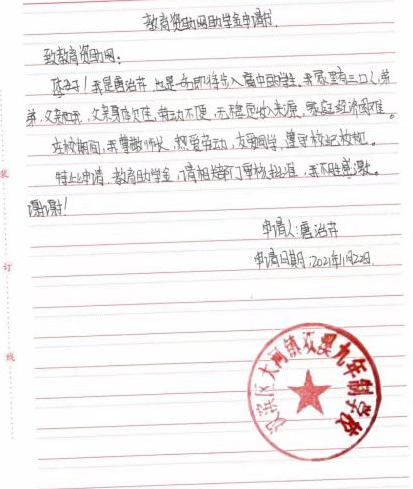 教育资助网助学金申请书
致教育资助网：
您好！我是唐治芹，也是一名即将步入高中的学生。我家里有三口人，弟
弟，父亲和我，父亲身体欠佳，劳动不便，无稳定收入来源，家庭经济困难。
在校期间，我尊敬师长，热爱劳动，友爱同学，遵守校纪校规。
特此申请，教育助学金，请相关部门审核批准，我不胜感激。
谢谢！
申请人：唐治芹
申请日期：2021年1月22日
装
订
线
汉滨区大河镇双溪九年制学校